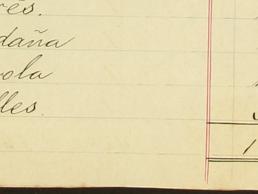 rés.
daña
ola
lles.
1